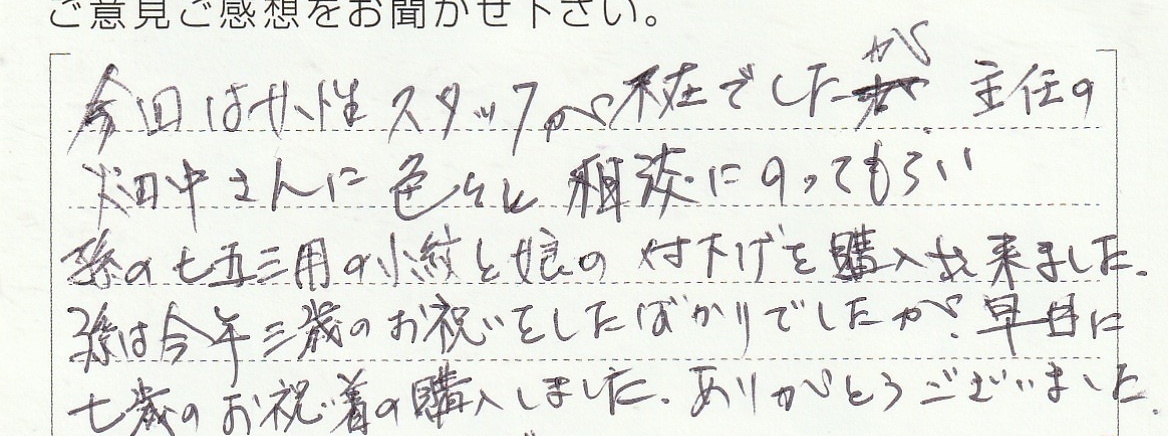 ご意見ご感想をお聞かせ下さい。
今回は女性スタッフが不在でしたが 主任の
畑中さんに色々と相談にのってもらい
孫の七五三用の小紋と娘の付下げを購入出来ました。
孫は今年三歳のお祝いをしたばかりでしたが、早目に
七歳のお祝い着の購入しました。ありがとうございました。